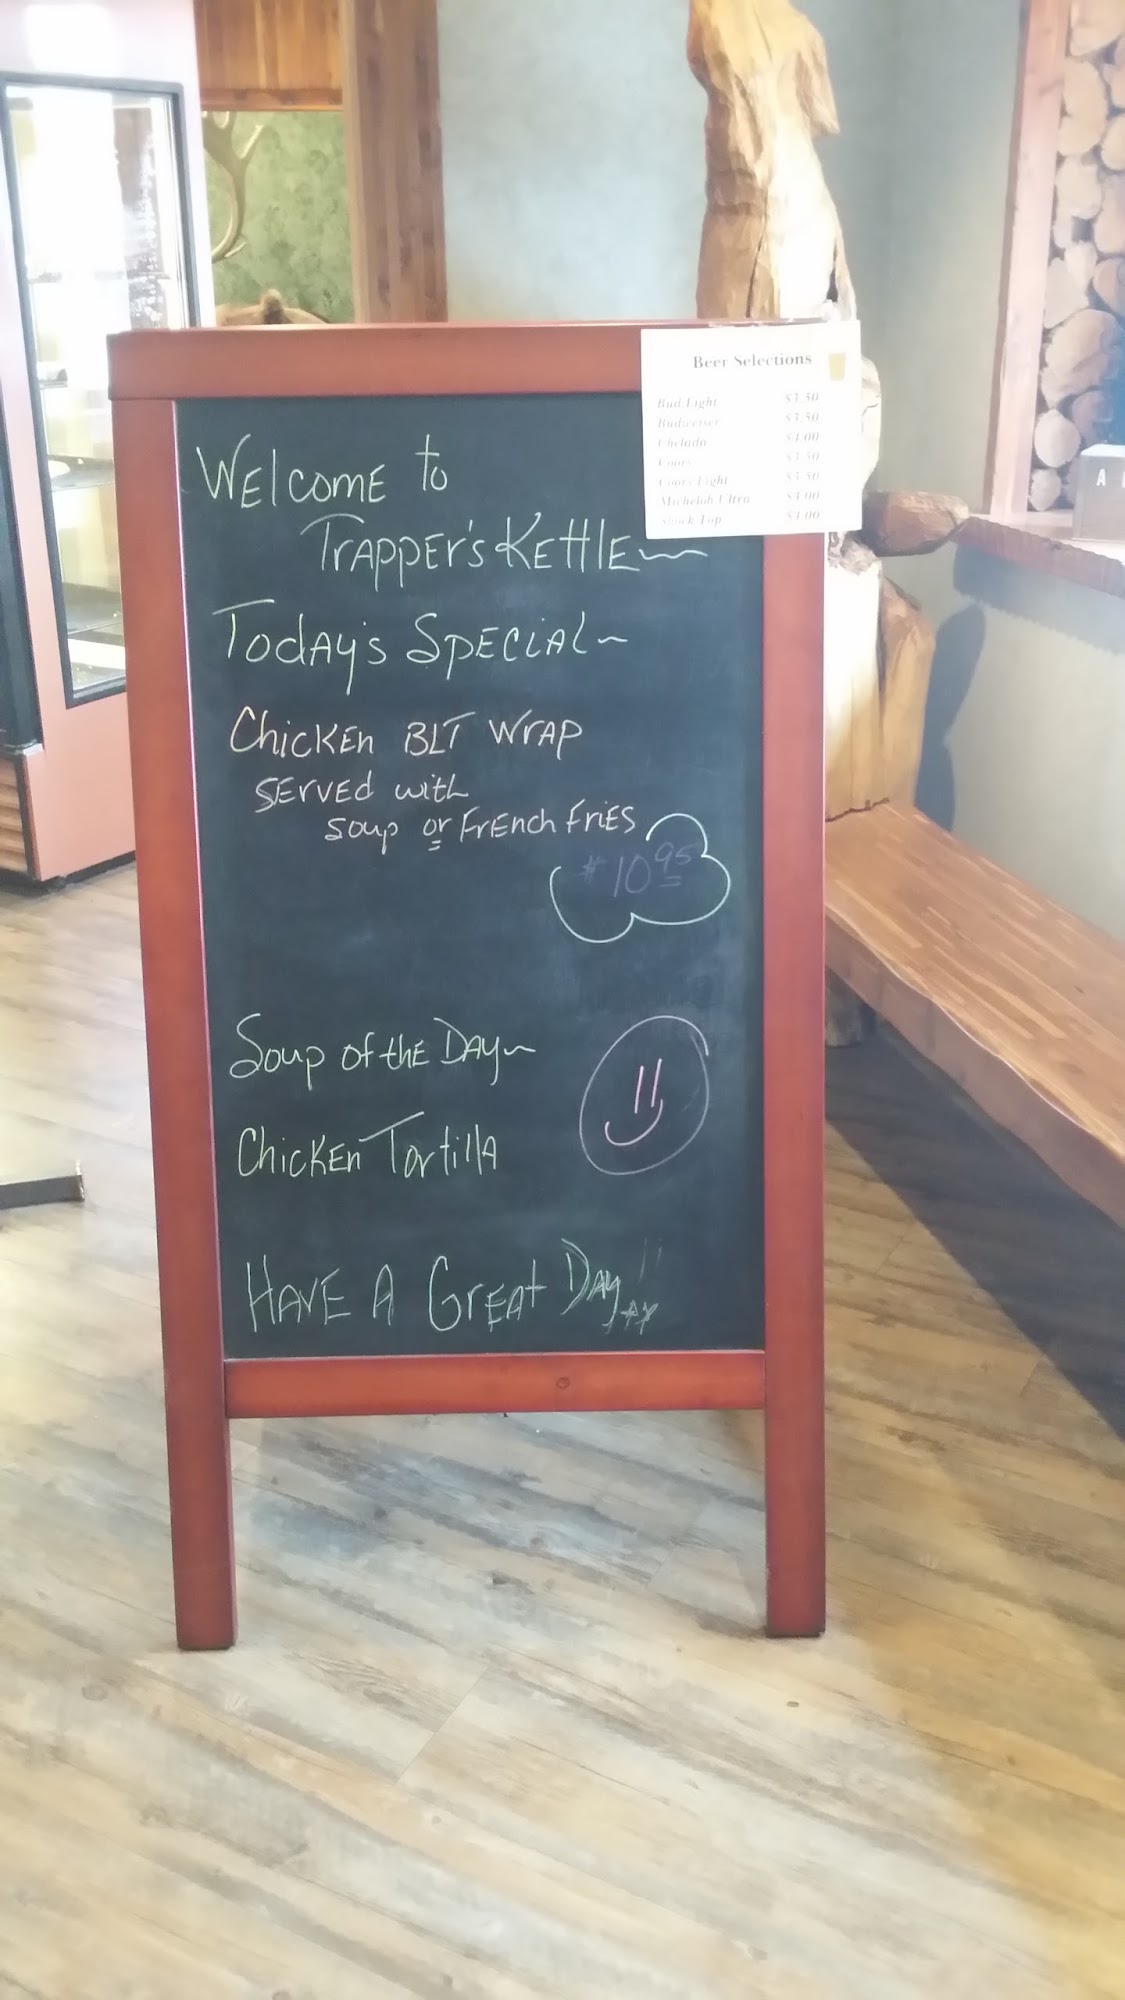 Beer Selections
Bud Light $3.50
Budweiser $3.50
Chelada $4.00
Coors $3.50
Coors Light $3.50
Michelob Ultra $4.00
Shock Top $4.00
WElcomE to
TrAppEr's KEttlE
TodAy's SpEciAl~
ChicKEn BLT WrAp
SErvEd with
Soup or FrEnch FriEs
$10.95
Soup of thE DAy~
ChicKEn TortillA
HAvE A GrEAt DAy!!